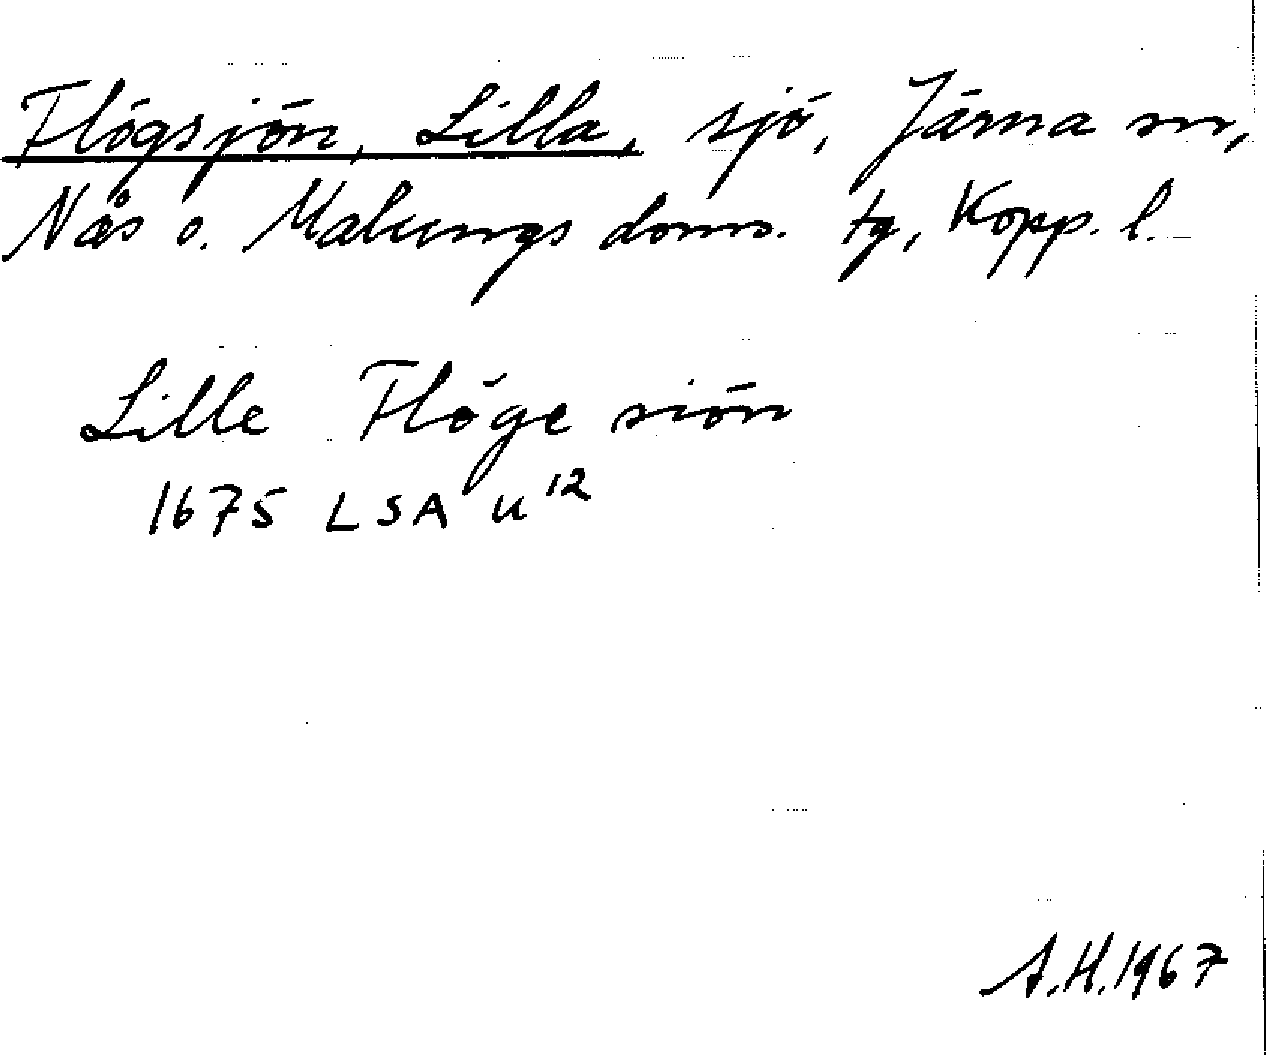 Flögsjön, Lilla, sjö, Järna sn,
Nås o. Malungs doms. tg, Kopp. l.
Lille Flöge siön
1675 LSA u12
A.H. 1967